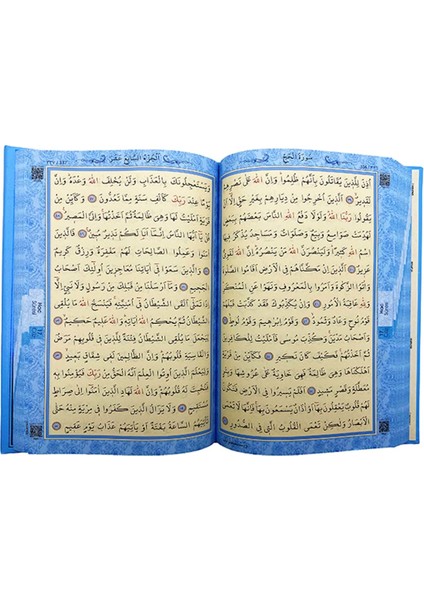 سُورَةُ الْحَجِّ
اُذِنَ لِلَّذ۪ينَ يُقَاتَلُونَ بِاَنَّهُمْ ظُلِمُوا وَاِنَّ اللّٰهَ عَلٰى نَصْرِهِمْ
لَقَد۪يرٌ اَلَّذ۪ينَ اُخْرِجُوا مِنْ دِيَارِهِمْ بِغَيْرِ حَقٍّ اِلَّٓا اَنْ
يَقُولُوا رَبُّنَا اللّٰهُ وَلَوْلَا دَفْعُ اللّٰهِ النَّاسَ بَعْضَهُمْ بِبَعْضٍ
لَهُدِّمَتْ صَوَامِعُ وَبِيَعٌ وَصَلَوَاتٌ وَمَسَاجِدُ يُذْكَرُ ف۪يهَا
اسْمُ اللّٰهِ كَث۪يرًا وَلَيَنْصُرَنَّ اللّٰهُ مَنْ يَنْصُرُهُ اِنَّ اللّٰهَ لَقَوِيٌّ
عَز۪يزٌ اَلَّذ۪ينَ اِنْ مَكَّنَّاهُمْ فِي الْاَرْضِ اَقَامُوا الصَّلٰوةَ
وَاٰتَوُا الزَّكٰوةَ وَاَمَرُوا بِالْمَعْرُوفِ وَنَهَوْا عَنِ الْمُنْكَرِ
وَلِلّٰهِ عَاقِبَةُ الْاُمُورِ وَاِنْ يُكَذِّبُوكَ فَقَدْ كَذَّبَتْ قَبْلَهُمْ
قَوْمُ نُوحٍ وَعَادٌ وَثَمُودُ وَقَوْمُ اِبْرٰه۪يمَ وَقَوْمُ لُوطٍ
وَاَصْحَابُ مَدْيَنَ وَكُذِّبَ مُوسٰى فَاَمْلَيْتُ لِلْكَافِر۪ينَ
ثُمَّ اَخَذْتُهُمْ فَكَيْفَ كَانَ نَك۪يرِ فَكَاَيِّنْ مِنْ قَرْيَةٍ
اَهْلَكْنَاهَا وَهِيَ ظَالِمَةٌ فَهِيَ خَاوِيَةٌ عَلٰى عُرُوشِهَا وَبِئْرٍ
مُعَطَّلَةٍ وَقَصْرٍ مَش۪يدٍ اَفَلَمْ يَس۪يرُوا فِي الْاَرْضِ فَتَكُونَ
لَهُمْ قُلُوبٌ يَعْقِلُونَ بِهَٓا اَوْ اٰذَانٌ يَسْمَعُونَ بِهَا فَاِنَّهَا لَا تَعْمَى
الْاَبْصَارُ وَلٰكِنْ تَعْمَى الْقُلُوبُ الَّت۪ي فِي الصُّدُورِ
اَلْجُزْءُ السَّابِعَ عَشَرَ
وَيَسْتَعْجِلُونَكَ بِالْعَذَابِ وَلَنْ يُخْلِفَ اللّٰهُ وَعْدَهُ وَاِنَّ
يَوْمًا عِنْدَ رَبِّكَ كَاَلْفِ سَنَةٍ مِمَّا تَعُدُّونَ وَكَاَيِّنْ مِنْ
قَرْيَةٍ اَمْلَيْتُ لَهَا وَهِيَ ظَالِمَةٌ ثُمَّ اَخَذْتُهَا وَاِلَيَّ الْمَص۪يرُ
قُلْ يَٓا اَيُّهَا النَّاسُ اِنَّمَٓا اَنَا لَكُمْ نَذ۪يرٌ مُب۪ينٌ فَالَّذ۪ينَ
اٰمَنُوا وَعَمِلُوا الصَّالِحَاتِ لَهُمْ مَغْفِرَةٌ وَرِزْقٌ كَر۪يمٌ
وَالَّذ۪ينَ سَعَوْا ف۪ٓي اٰيَاتِنَا مُعَاجِز۪ينَ اُو۬لٰٓئِكَ اَصْحَابُ
الْجَح۪يمِ وَمَٓا اَرْسَلْنَا مِنْ قَبْلِكَ مِنْ رَسُولٍ وَلَا نَبِيٍّ اِلَّٓا
اِذَا تَمَنّٰٓى اَلْقَى الشَّيْطَانُ ف۪ٓي اُمْنِيَّتِه۪ فَيَنْسَخُ اللّٰهُ مَا يُلْقِي
الشَّيْطَانُ ثُمَّ يُحْكِمُ اللّٰهُ اٰيَاتِه۪ وَاللّٰهُ عَل۪يمٌ حَك۪يمٌ
لِيَجْعَلَ مَا يُلْقِي الشَّيْطَانُ فِتْنَةً لِلَّذ۪ينَ ف۪ي قُلُوبِهِمْ مَرَضٌ
وَالْقَاسِيَةِ قُلُوبُهُمْ وَاِنَّ الظَّالِم۪ينَ لَف۪ي شِقَاقٍ بَع۪يدٍ
وَلِيَعْلَمَ الَّذ۪ينَ اُو۫تُوا الْعِلْمَ اَنَّهُ الْحَقُّ مِنْ رَبِّكَ فَيُؤْمِنُوا بِه۪
فَتُخْبِتَ لَهُ قُلُوبُهُمْ وَاِنَّ اللّٰهَ لَهَادِ الَّذ۪ينَ اٰمَنُٓوا اِلٰى صِرَاطٍ
مُسْتَق۪يمٍ وَلَا يَزَالُ الَّذ۪ينَ كَفَرُوا ف۪ي مِرْيَةٍ مِنْهُ حَتّٰى
تَأْتِيَهُمُ السَّاعَةُ بَغْتَةً اَوْ يَأْتِيَهُمْ عَذَابُ يَوْمٍ عَق۪يمٍ